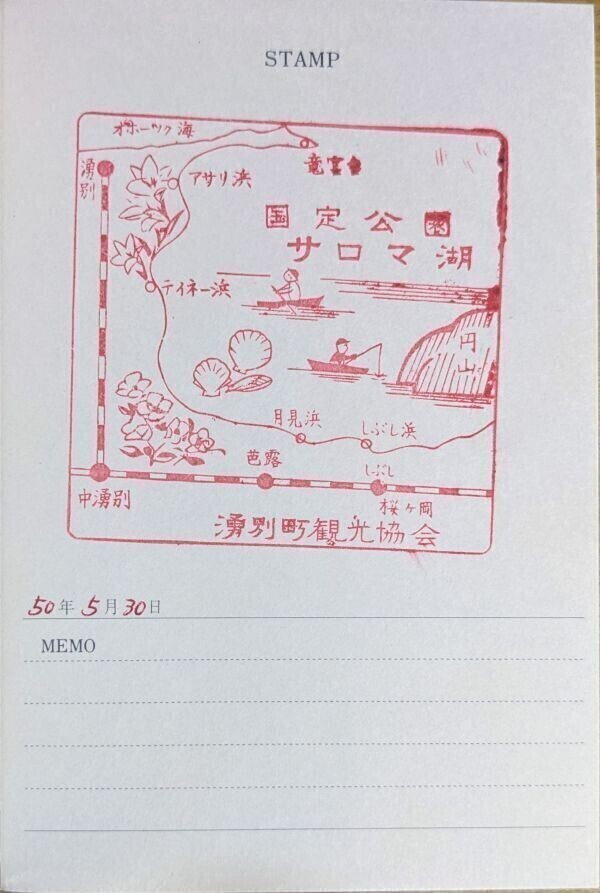 STAMP
オホーツク海
湧別
竜宮台
アサリ浜
国定公園
サロマ湖
テイネー浜
円山
月見浜
しぶし浜
芭露
しぶし
中湧別
桜ヶ岡
湧別町観光協会
50年5月30日
MEMO